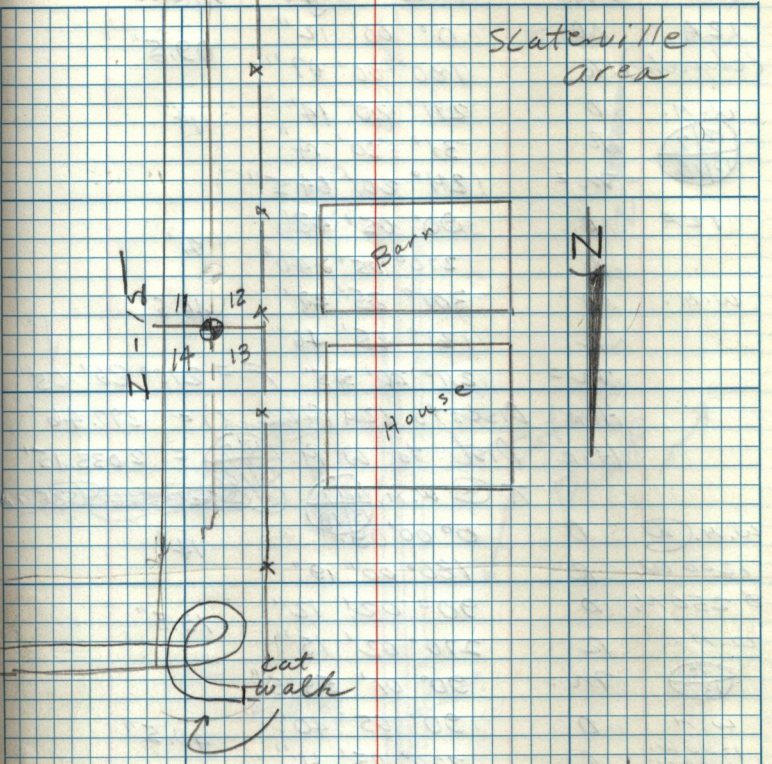 Slaterville
area
Barn
N
11 12
14 13
House
cat
walk